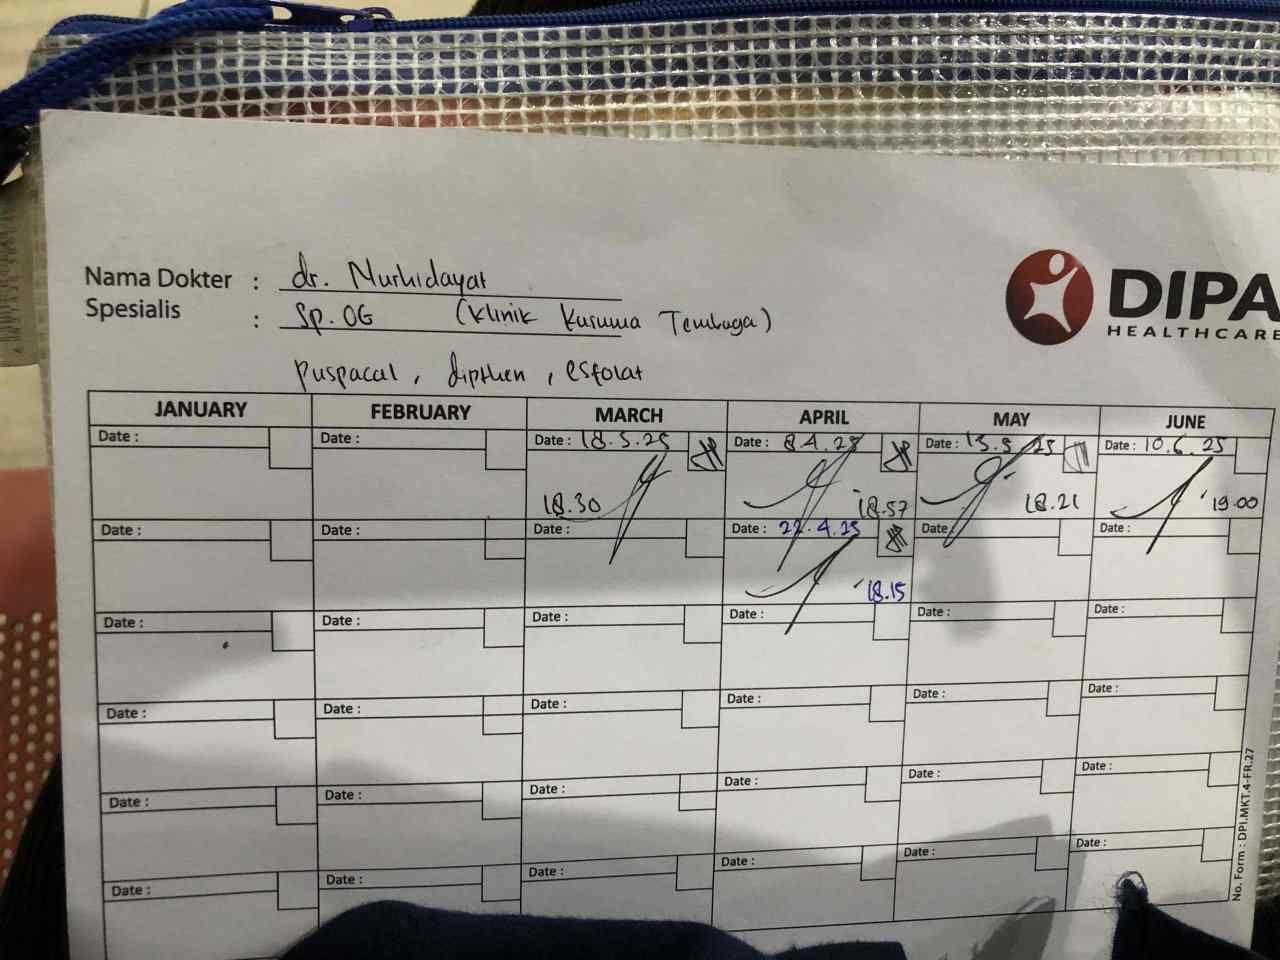 Nama Dokter : dr. Nurhidayat
Spesialis : Sp.OG (Klinik Kusuma Tembaga)
DIPA
HEALTHCARE
puspacal, dipthen, esfolat
JANUARY FEBRUARY MARCH APRIL MAY JUNE
Date : Date : Date : 18.3.25 Date : 8.4.25 Date : 13.5.25 Date : 10.6.25
18.30 18.57 18.21 19.00
Date : Date : Date : Date : 22.4.25 Date : Date :
18.15
Date : Date : Date : Date : Date : Date :
Date : Date : Date : Date : Date : Date :
Date : Date : Date : Date : Date : Date :
Date : Date : Date : Date : Date : Date :
No. Form : DPI.MKT.4-FR.27